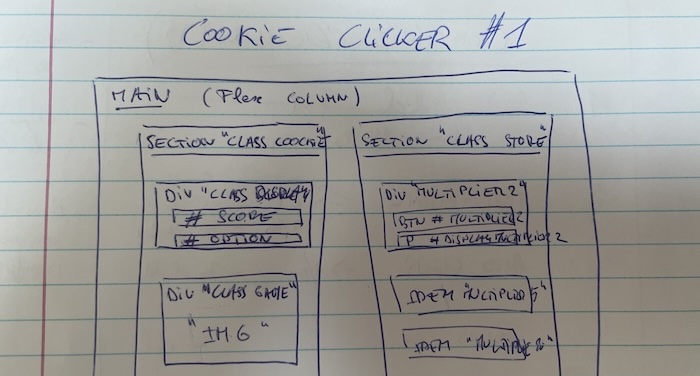 COOKIE CLICKER #1
MAIN (Flex COLUMN)
SECTION "CLASS COOCKIE"
Div "CLASS DISPLAY"
# SCORE
# OPTION
Div "CLASS
"IMG"
SECTION "CLASS STORE"
Div "MULTIPLIER2"
BTN # MULTIPLIER2
P # DISPLAY MULTIPLIER2
IDEM
IDEM